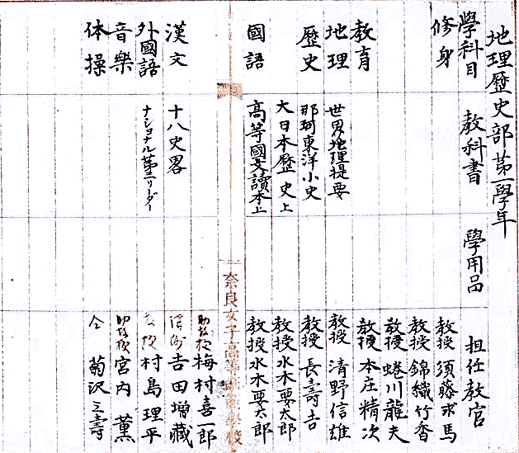 地理歷史部第一學年
學科目 教科書 學用品 担任教官
修身 教授 須藤求馬
教授 錦織竹香
教授 蜷川龍夫
教育 教授 本庄精次
地理 世界地理提要 教授 清野信雄
歷史 那珂東洋小史 教授 長壽吉
大日本歷史上 教授 水木要太郎
國語 高等國文讀本上 教授 水木要太郎
奈良女子高等師範學校
助教授 梅村喜一郎
漢文 十八史畧 吉田増藏
外國語 ナショナル第三リーダー 村島理平
音樂 助教授 宮内薫
体操 仝 菊沢三壽